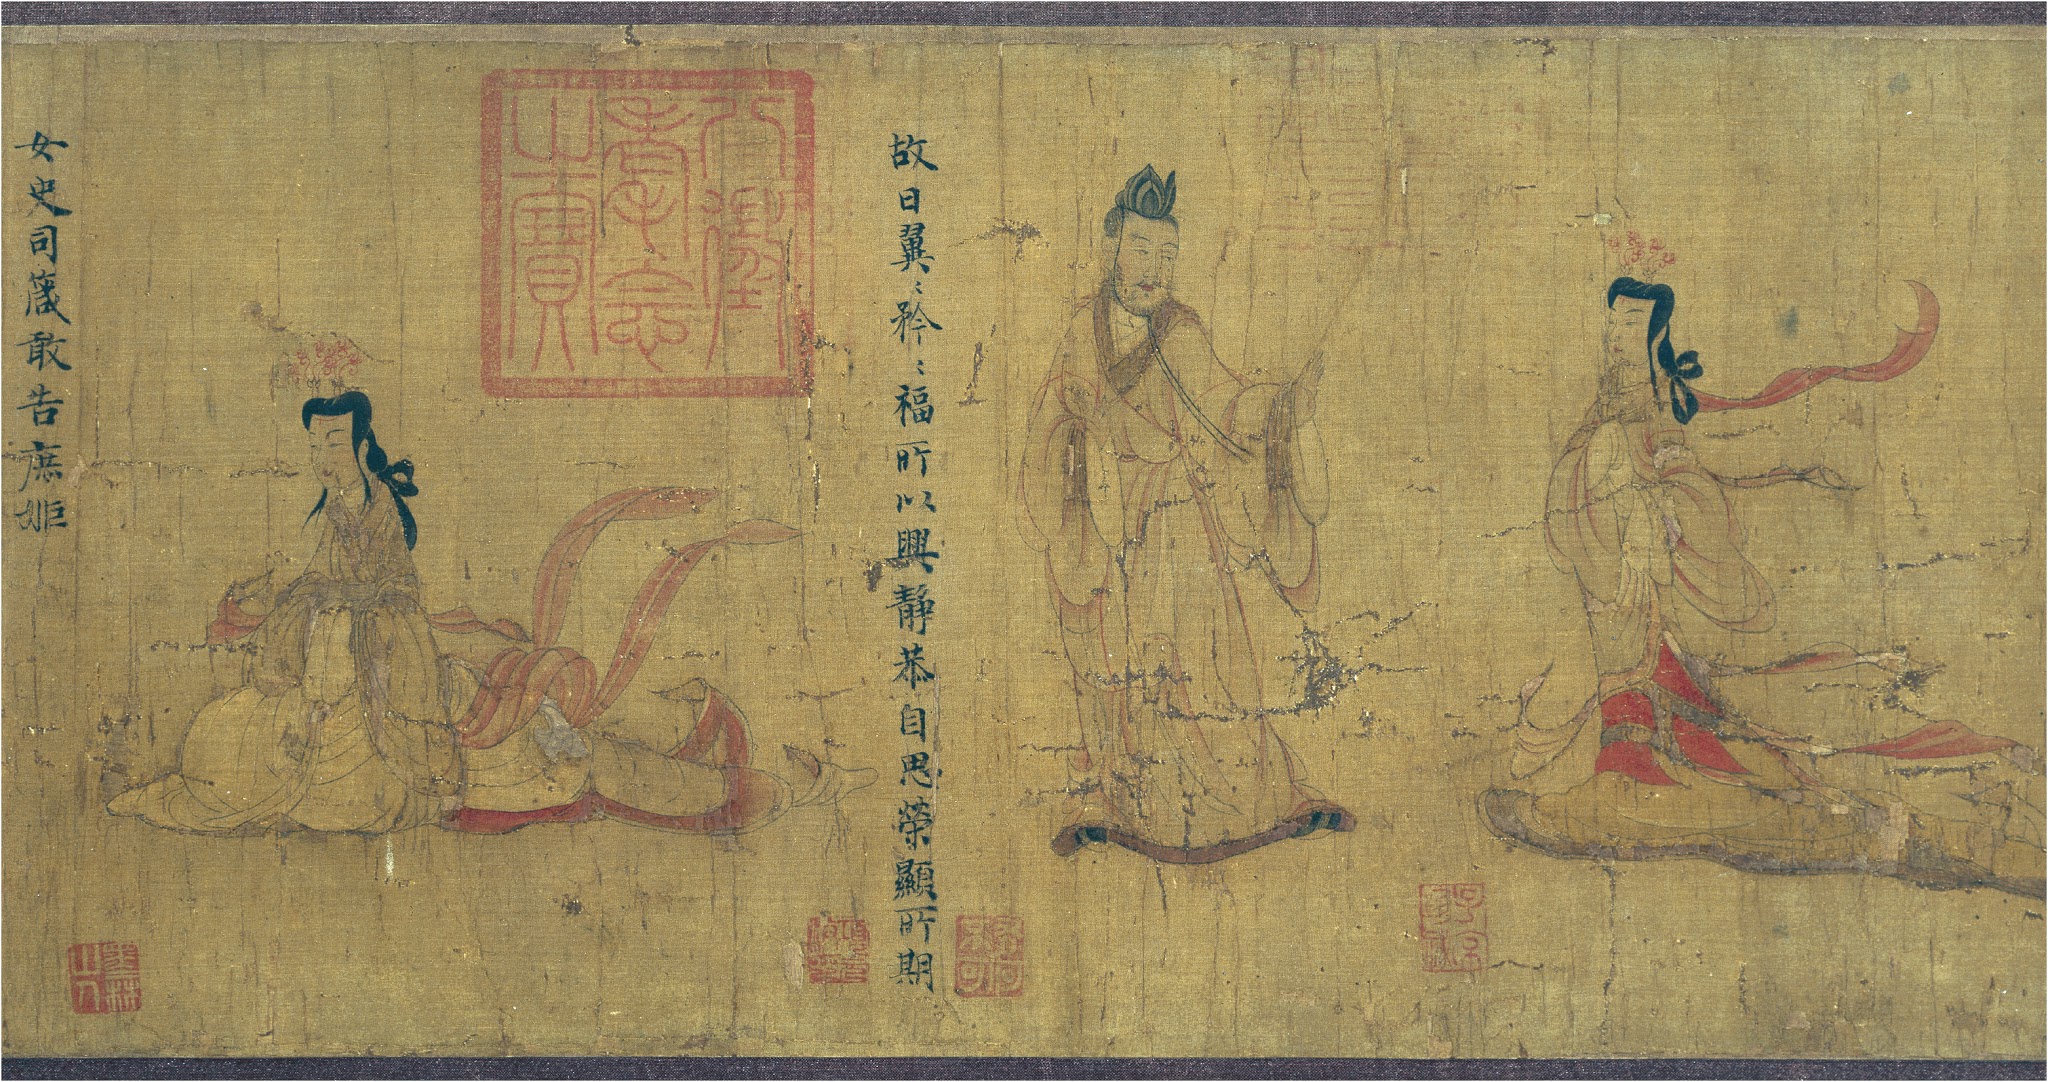 故曰翼〻矜〻福所以興靜恭自思榮顯所期
八徵
耄念
之寶
女史司箴敢告庶姬